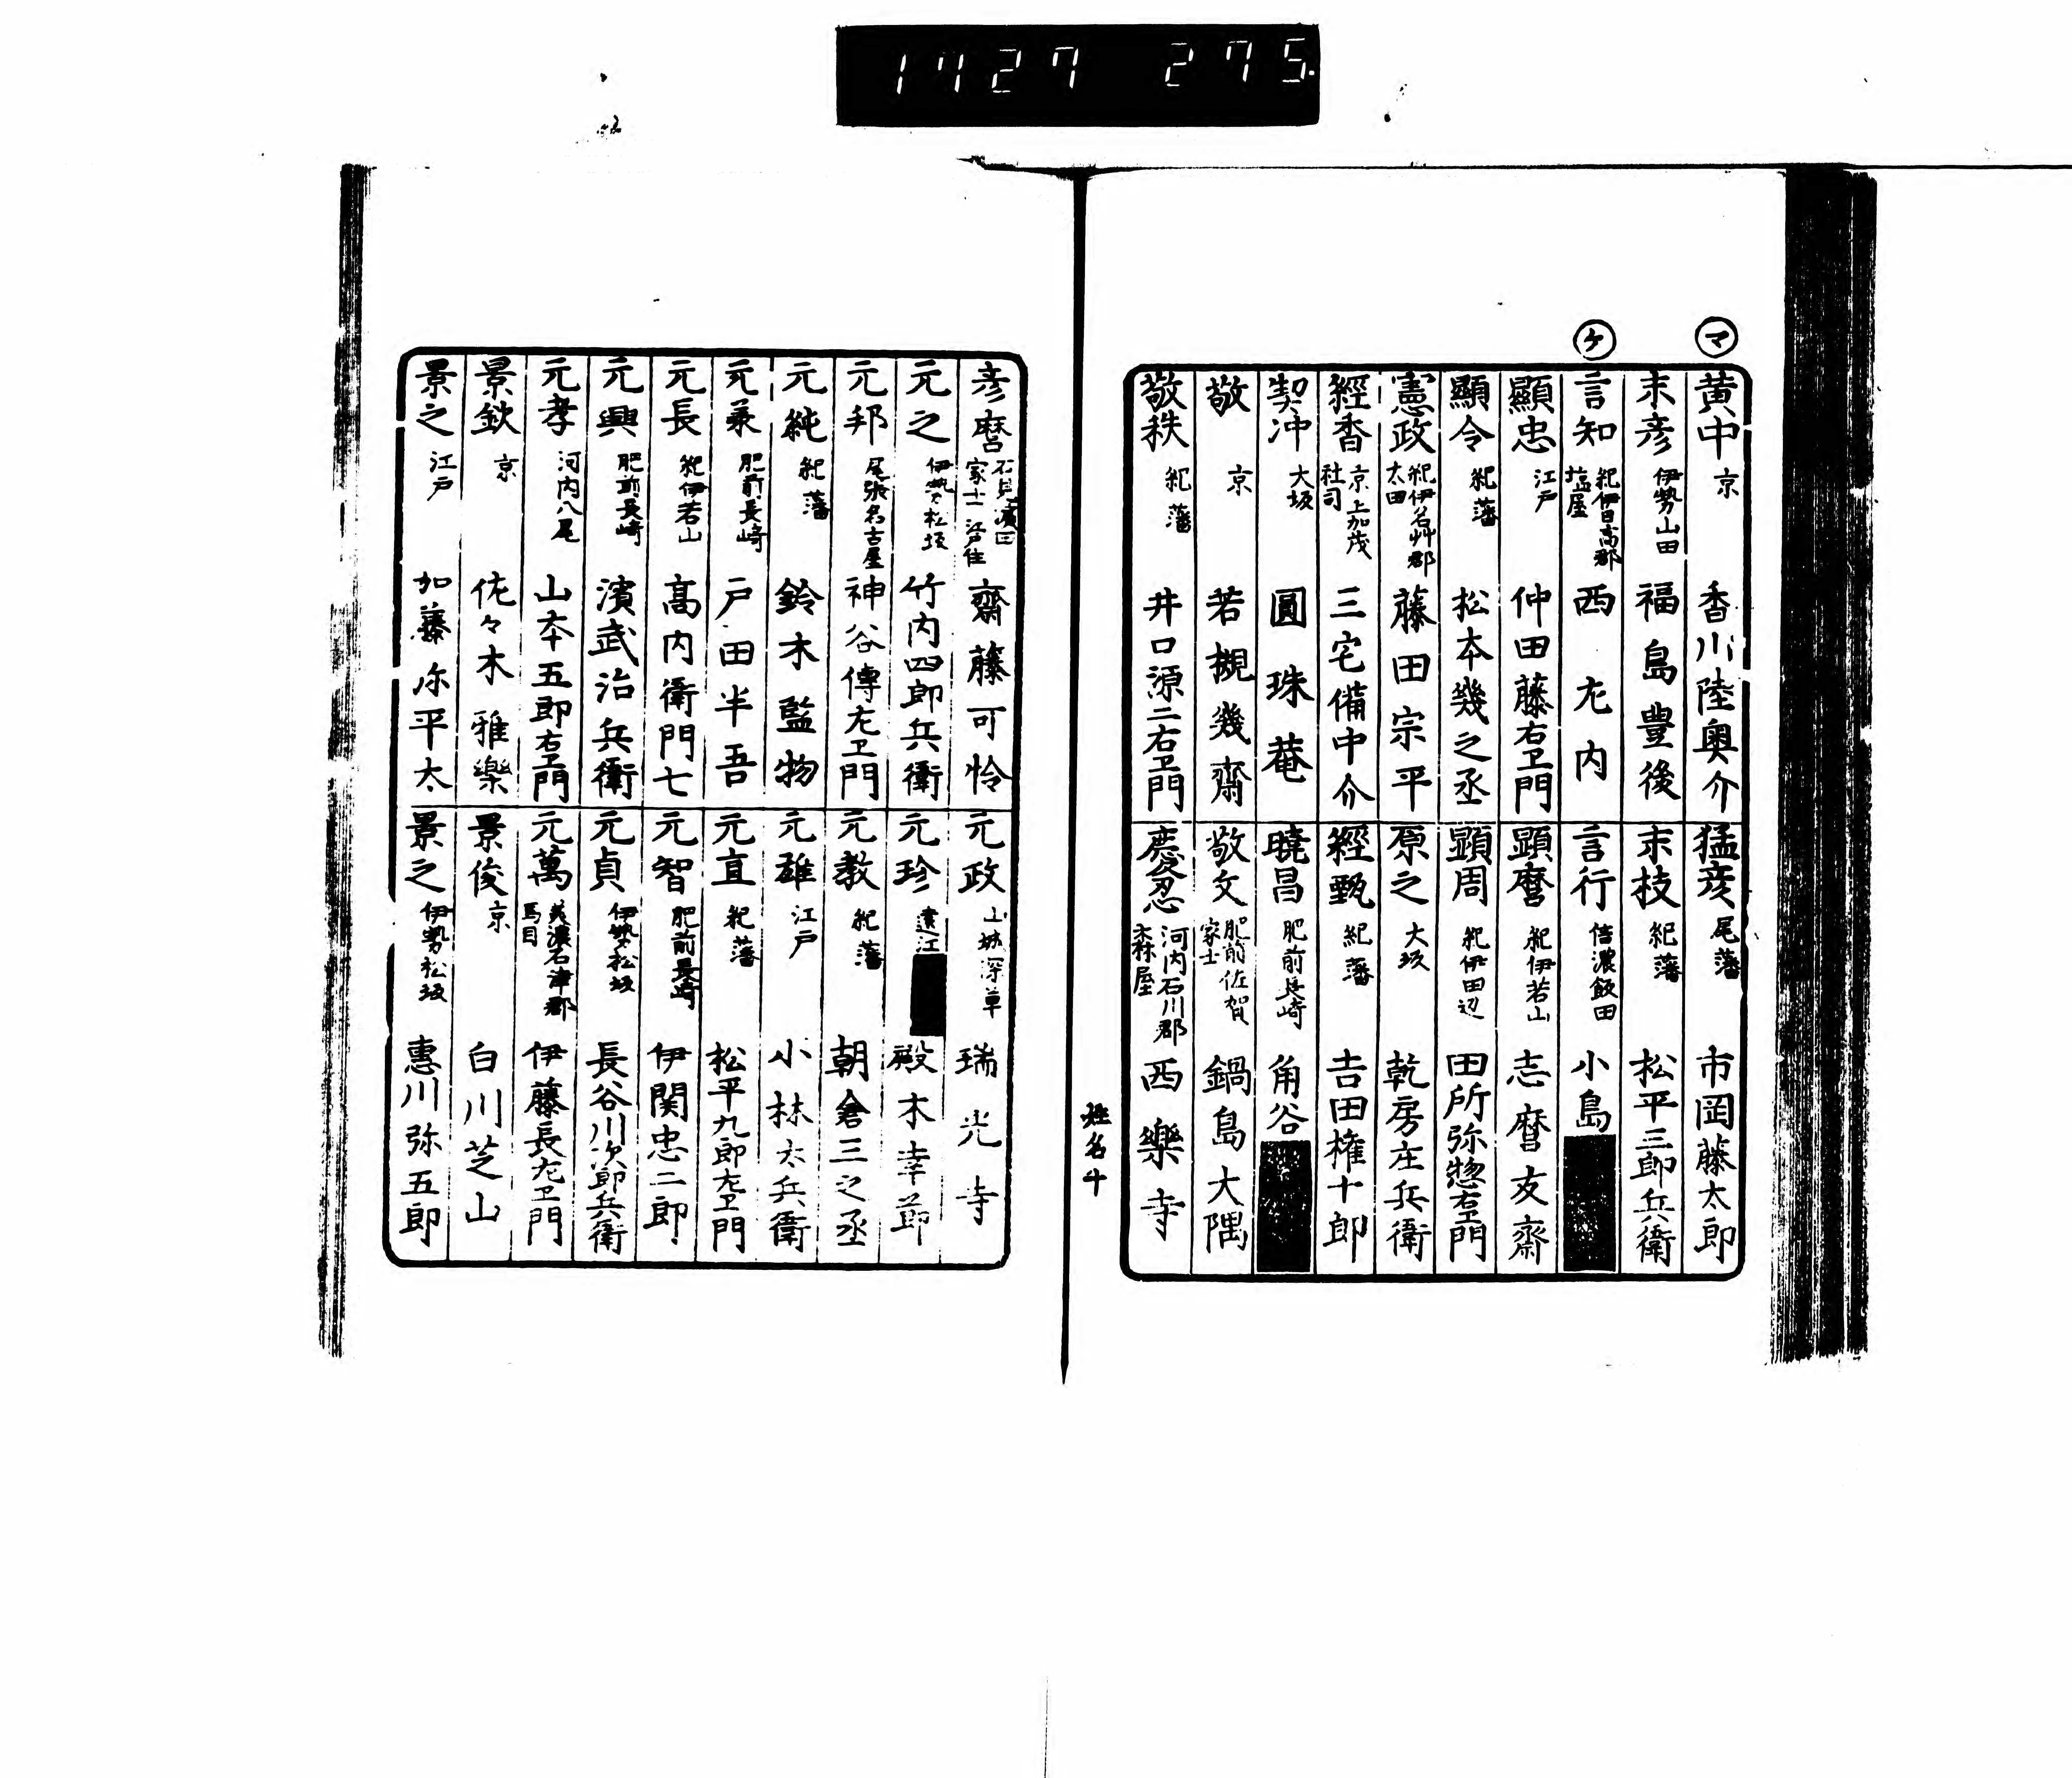 1727 275
マ
黄中 京 香川陸奥介
末彦 伊勢山田 福島豊後
ケ
言知 紀伊日高郡塩屋 西尢内
顯忠 江戸 仲田藤右卫門
顯令 紀藩 松本幾之丞
憲政 紀伊名艸郡太田 藤田宗平
經香 京上加茂社司 三宅備中介
契冲 大坂 圓珠菴
敬 京 若槻幾齋
敬秩 紀藩 井口源二右卫門
猛彦 尾藩 市岡藤太郎
末枝 紀藩 松平三郎兵衛
言行 信濃飯田 小島
顕麿 紀伊若山 志麿友齋
顕周 紀伊田辺 田所弥惣右卫門
原之 大坂 乾房庄兵衛
經甄 紀藩 吉田権十郎
曉昌 肥前長崎 角谷
敬文 肥前佐賀家士 鍋島大隅
慶忍 河内石川郡森屋 西樂寺
姓名
彦麿 石見濱田家士江戸住 齋藤可怜
元之 伊勢松坂 竹内四郎兵衛
元邦 尾張名古屋 神谷傳左卫門
元純 紀藩 鈴木監物
元兼 肥前長崎 戸田半吾
元長 紀伊若山 高内衛門七
元興 肥前長崎 濱武治兵衛
元孝 河内八尾 山本五郎右卫門
景欽 京 佐々木雅樂
景之 江戸 加藤弥平太
元政 山城深草 瑞光寺
元珍 遠江 殿木幸節
元教 紀藩 朝倉三之丞
元雄 江戸 小林太兵衛
元直 紀藩 松平九郎左卫門
元智 肥前長崎 伊関忠二郎
元貞 伊勢松坂 長谷川次郎兵衛
元萬 美濃石津郡馬目 伊藤長左卫門
景俊 京 白川芝山
景之 伊勢松坂 惠川弥五郎